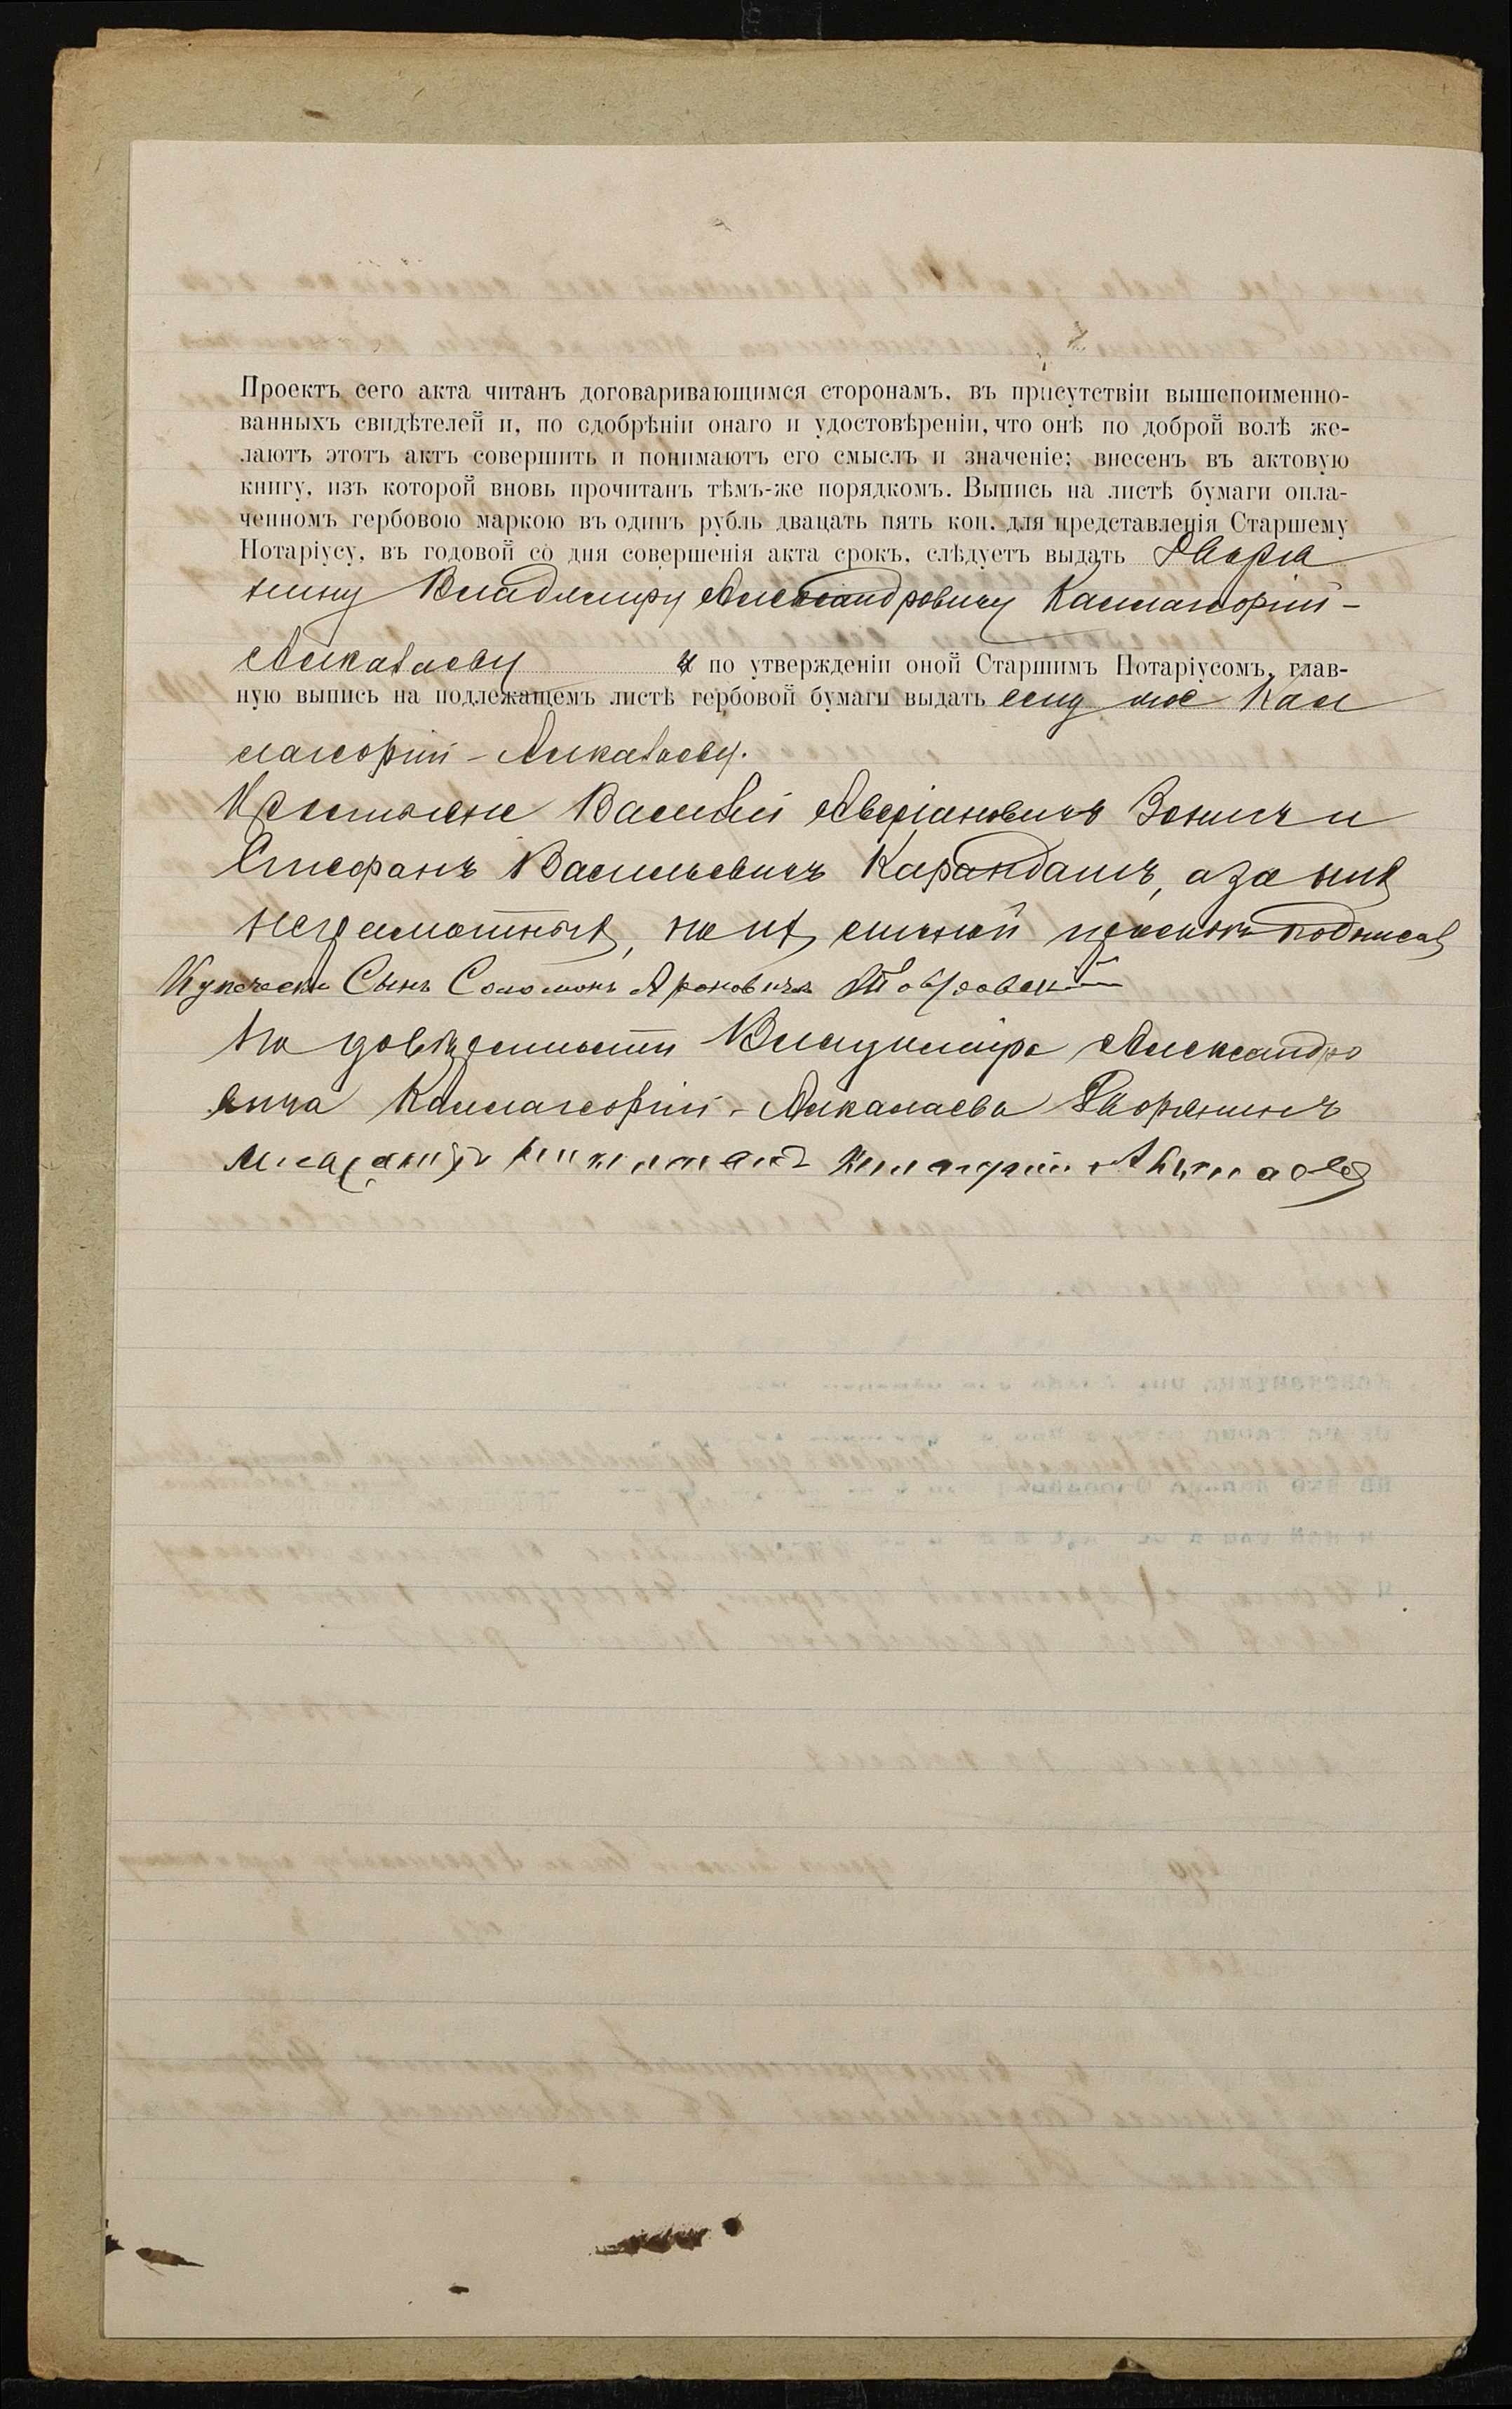 Проектъ сего акта читанъ договаривающимся сторонамъ, въ присутствіи вышепоименно-
ванныхъ свидѣтелей и, по одобрѣніи онаго и удостовѣреніи, что онѣ по доброй волѣ же-
лаютъ этотъ актъ совершить и понимаютъ его смыслъ и значеніе; внесенъ въ актовую
книгу, изъ которой вновь прочитанъ тѣмъ-же порядкомъ. Выпись на листѣ бумаги опла-
ченномъ гербовою маркою въ одинъ рубль двацать пять коп. для представленія Старшему
Нотаріусу, въ годовой со дня совершенія акта срокъ, слѣдуетъ выдать Дворя
нину Владиміру Александровичу
и по утвержденіи оной Старшимъ Нотаріусомъ, глав-
ную выпись на подлежащемъ листѣ гербовой бумаги выдать ему же
Крестьяне Василій Аверіановичъ и
Стефанъ Васильевичъ Карандашъ, а за нихъ
неграмотныхъ, по ихъ личной просьбѣ подписалъ
Купеческій Сынъ Соломонъ Ароновичъ
По довѣренности Владиміра Александро
вича Дворянинъ